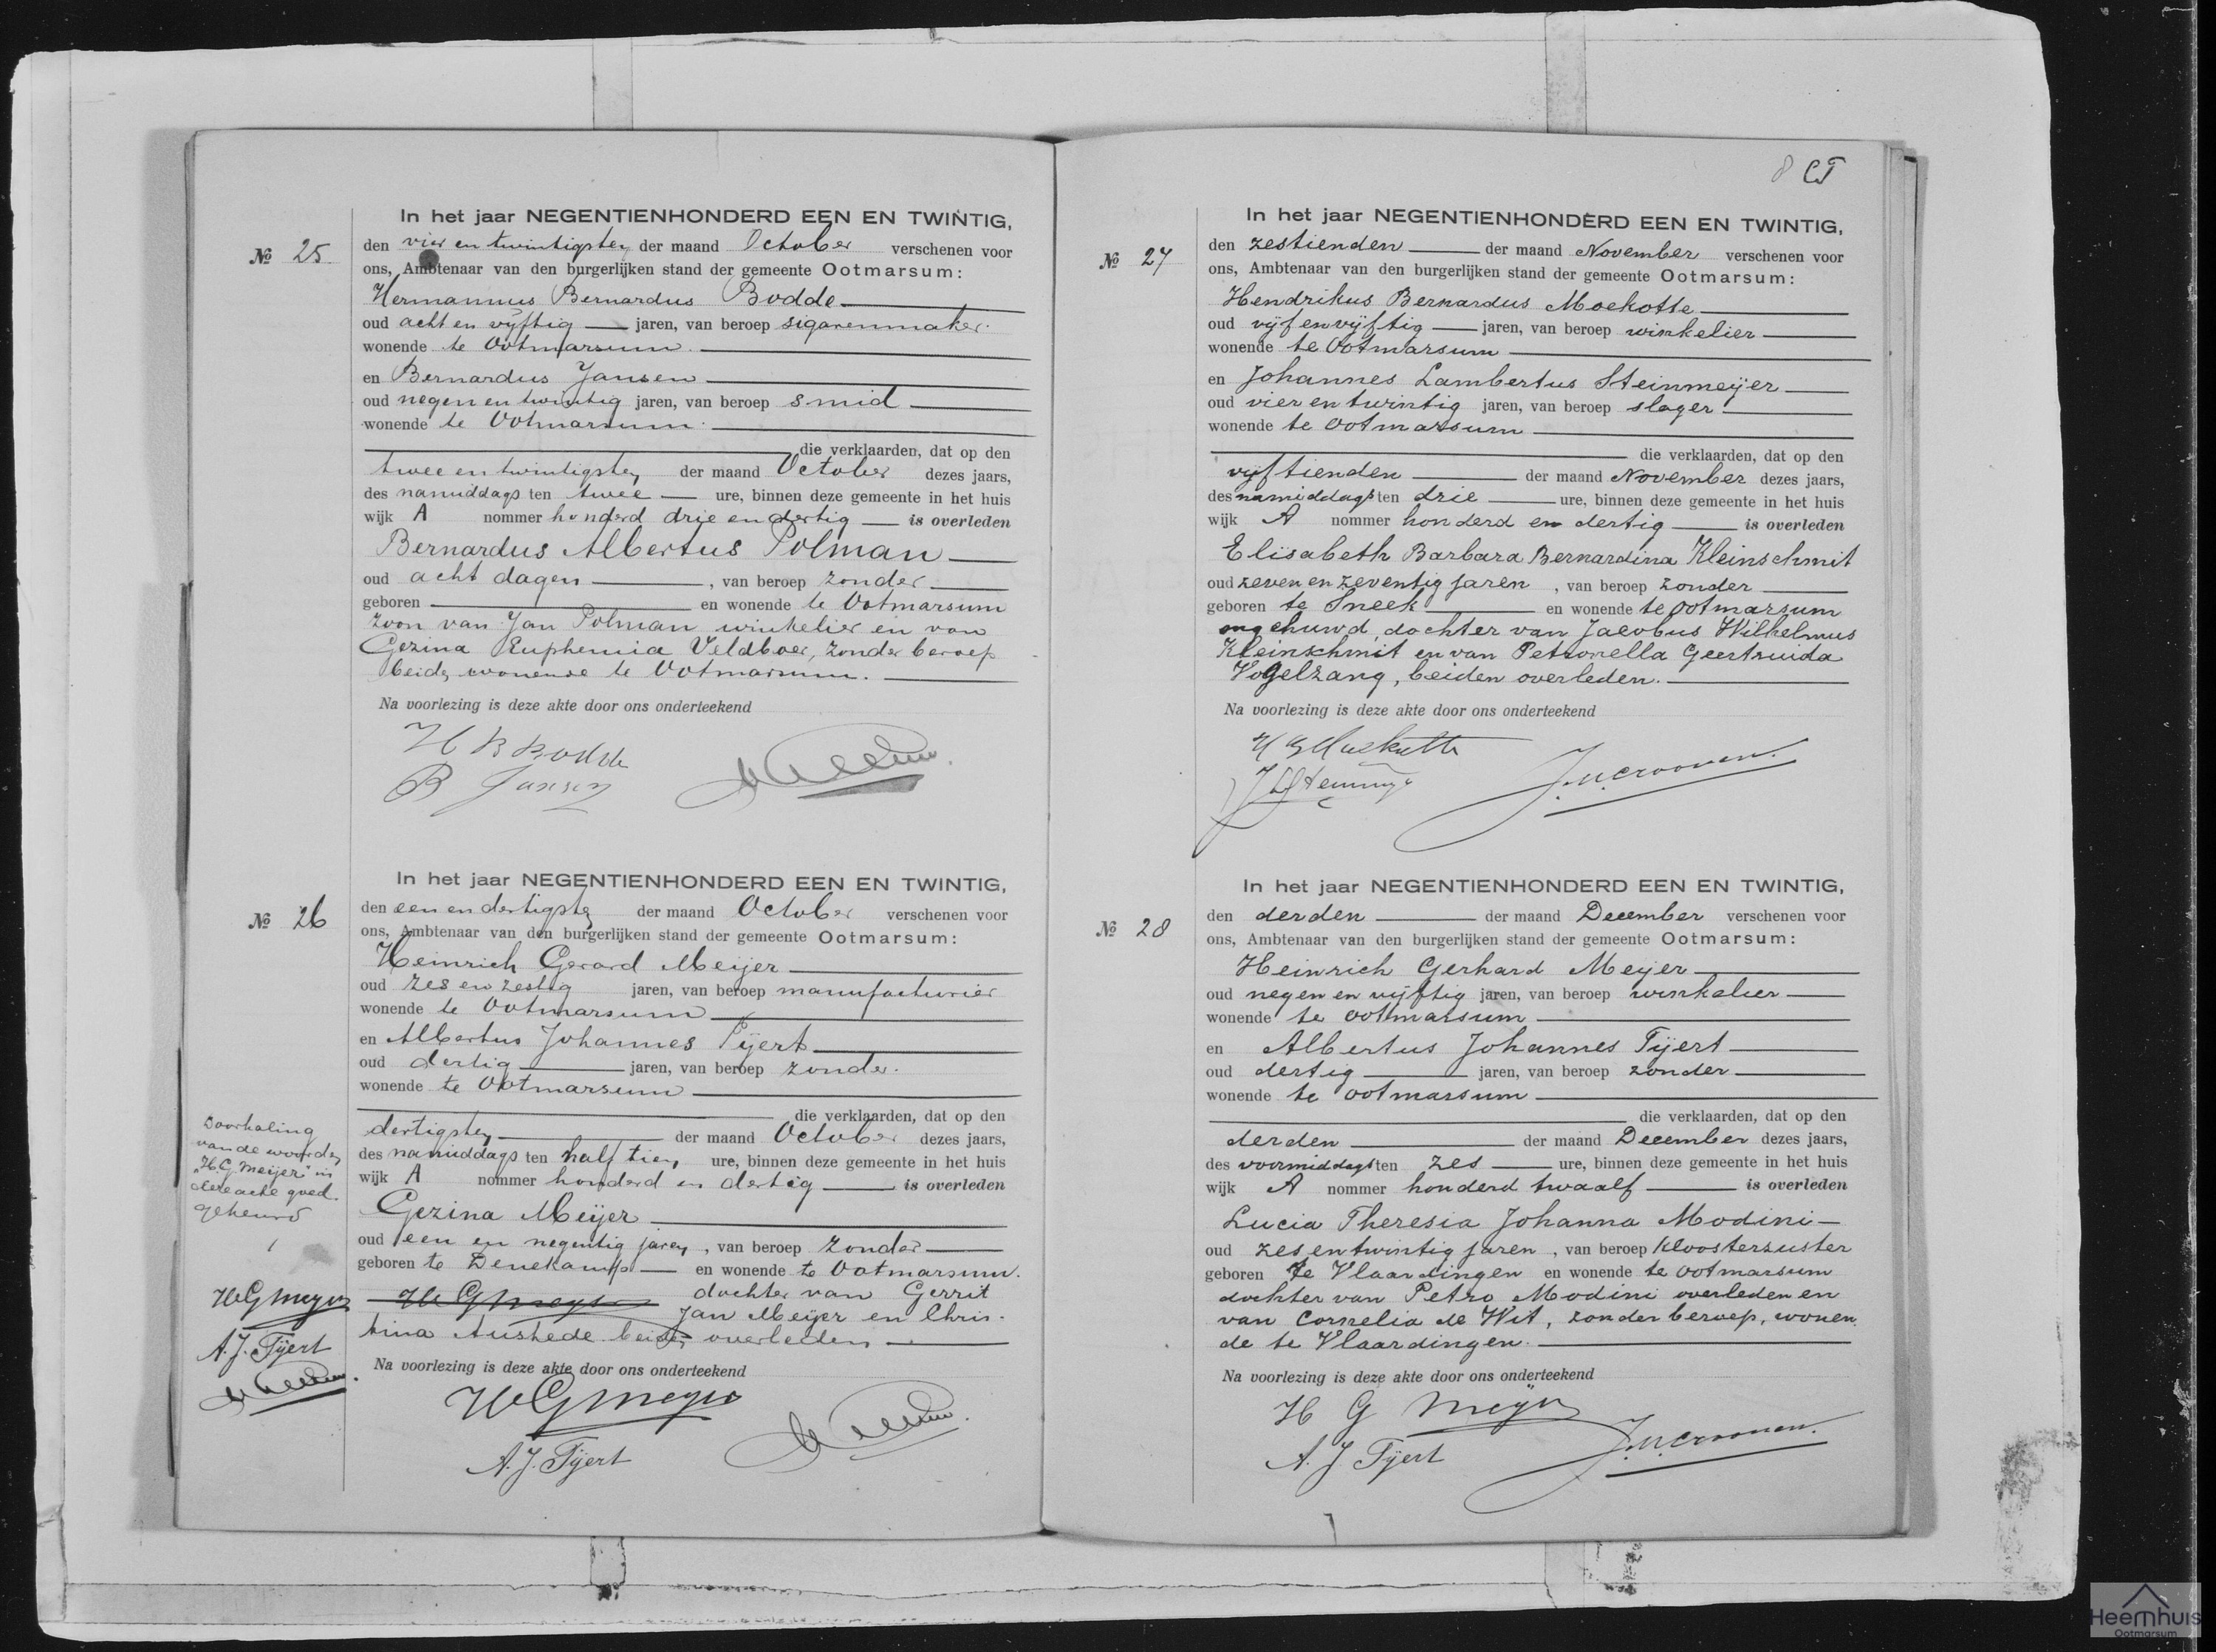 In het jaar NEGENTIENHONDERD EEN EN TWINTIG,
№ 25.
den vier en twintigsten der maand October verschenen voor
ons, Ambtenaar van den burgerlijken stand der gemeente Ootmarsum:
Hermannus Bernardus Bodde
oud acht en vijftig jaren, van beroep sigarenmaker.
wonende te Ootmarsum.
en Bernardus Jansen
oud negen en twintig jaren, van beroep smid
wonende te Ootmarsum.
die verklaarden, dat op den
twee en twintigsten der maand October dezes jaars,
des namiddags ten twee ure, binnen deze gemeente in het huis
wijk A nommer honderd drie en dertig is overleden
Bernardus Albertus Polman
oud acht dagen, van beroep zonder
geboren en wonende te Ootmarsum
zoon van Jan Polman winkelier en van
Gezina Euphemia Veldboer, zonder beroep
beiden wonende te Ootmarsum.
Na voorlezing is deze akte door ons onderteekend
H B Bodde
B Jansen
In het jaar NEGENTIENHONDERD EEN EN TWINTIG,
№ 26
den een en dertigsten der maand October verschenen voor
ons, Ambtenaar van den burgerlijken stand der gemeente Ootmarsum:
Heinrich Gerard Meijer
oud zes en zestig jaren, van beroep manufacturier
wonende te Ootmarsum
en Albertus Johannes Tijert
oud dertig jaren, van beroep zonder.
wonende te Ootmarsum
die verklaarden, dat op den
dertigsten der maand October dezes jaars,
des namiddags ten half tien ure, binnen deze gemeente in het huis
wijk A nommer honderd en dertig is overleden
Gezina Meijer
oud een en negentig jaren, van beroep zonder
geboren te Denekamp en wonende te Ootmarsum.
HG Meyer dochter van Gerrit
Jan Meijer en Chris-
tina Austede beiden overleden
Na voorlezing is deze akte door ons onderteekend
HG Meyer
A. J. Tijert
Doorhaling
van de woorden
"H.G. Meijer" in
deze acte goed-
gekeurd
HG Meyer
A. J. Tijert
8
In het jaar NEGENTIENHONDERD EEN EN TWINTIG,
№ 27
den zestienden der maand November verschenen voor
ons, Ambtenaar van den burgerlijken stand der gemeente Ootmarsum:
Hendrikus Bernardus Moekotte
oud vijf en vijftig jaren, van beroep winkelier
wonende te Ootmarsum
en Johannes Lambertus Steinmeijer
oud vier en twintig jaren, van beroep slager
wonende te Ootmarsum
die verklaarden, dat op den
vijftienden der maand November dezes jaars,
des namiddags ten drie ure, binnen deze gemeente in het huis
wijk A nommer honderd en dertig is overleden
Elisabeth Barbara Bernardina Kleinschmit
oud zeven en zeventig jaren, van beroep zonder
geboren te Sneek en wonende te Ootmarsum
ongehuwd, dochter van Jacobus Wilhelmus
Kleinschmit en van Petronella Geertruida
Vogelzang, beiden overleden.
Na voorlezing is deze akte door ons onderteekend
H B Moekotte
J. M. Croonen.
In het jaar NEGENTIENHONDERD EEN EN TWINTIG,
№ 28
den derden der maand December verschenen voor
ons, Ambtenaar van den burgerlijken stand der gemeente Ootmarsum:
Heinrich Gerhard Meyer
oud negen en vijftig jaren, van beroep winkelier
wonende te Ootmarsum
en Albertus Johannes Tijert
oud dertig jaren, van beroep zonder
wonende te Ootmarsum
die verklaarden, dat op den
derden der maand December dezes jaars,
des voormiddags ten zes ure, binnen deze gemeente in het huis
wijk A nommer honderd twaalf is overleden
Lucia Theresia Johanna Modini
oud zes en twintig jaren, van beroep kloosterzuster
geboren te Vlaardingen en wonende te Ootmarsum
dochter van Petro Modini overleden en
van Cornelia de Wit, zonder beroep, wonen-
de te Vlaardingen.
Na voorlezing is deze akte door ons onderteekend
H G Meyer
A. J Tijert
J. M. Croonen.
Heemhuis
Ootmarsum